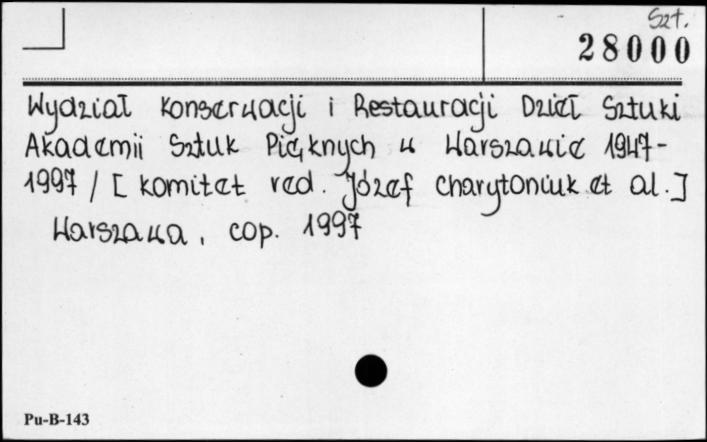 Szt.
28000
Wydział Konserwacji i Restauracji Dzieł Sztuki
Akademii Sztuk Pięknych w Warszawie 1947-
1997 / [ komitet red. Józef Charytoniuk et al. ]
Warszawa, cop. 1997
Pu-B-143